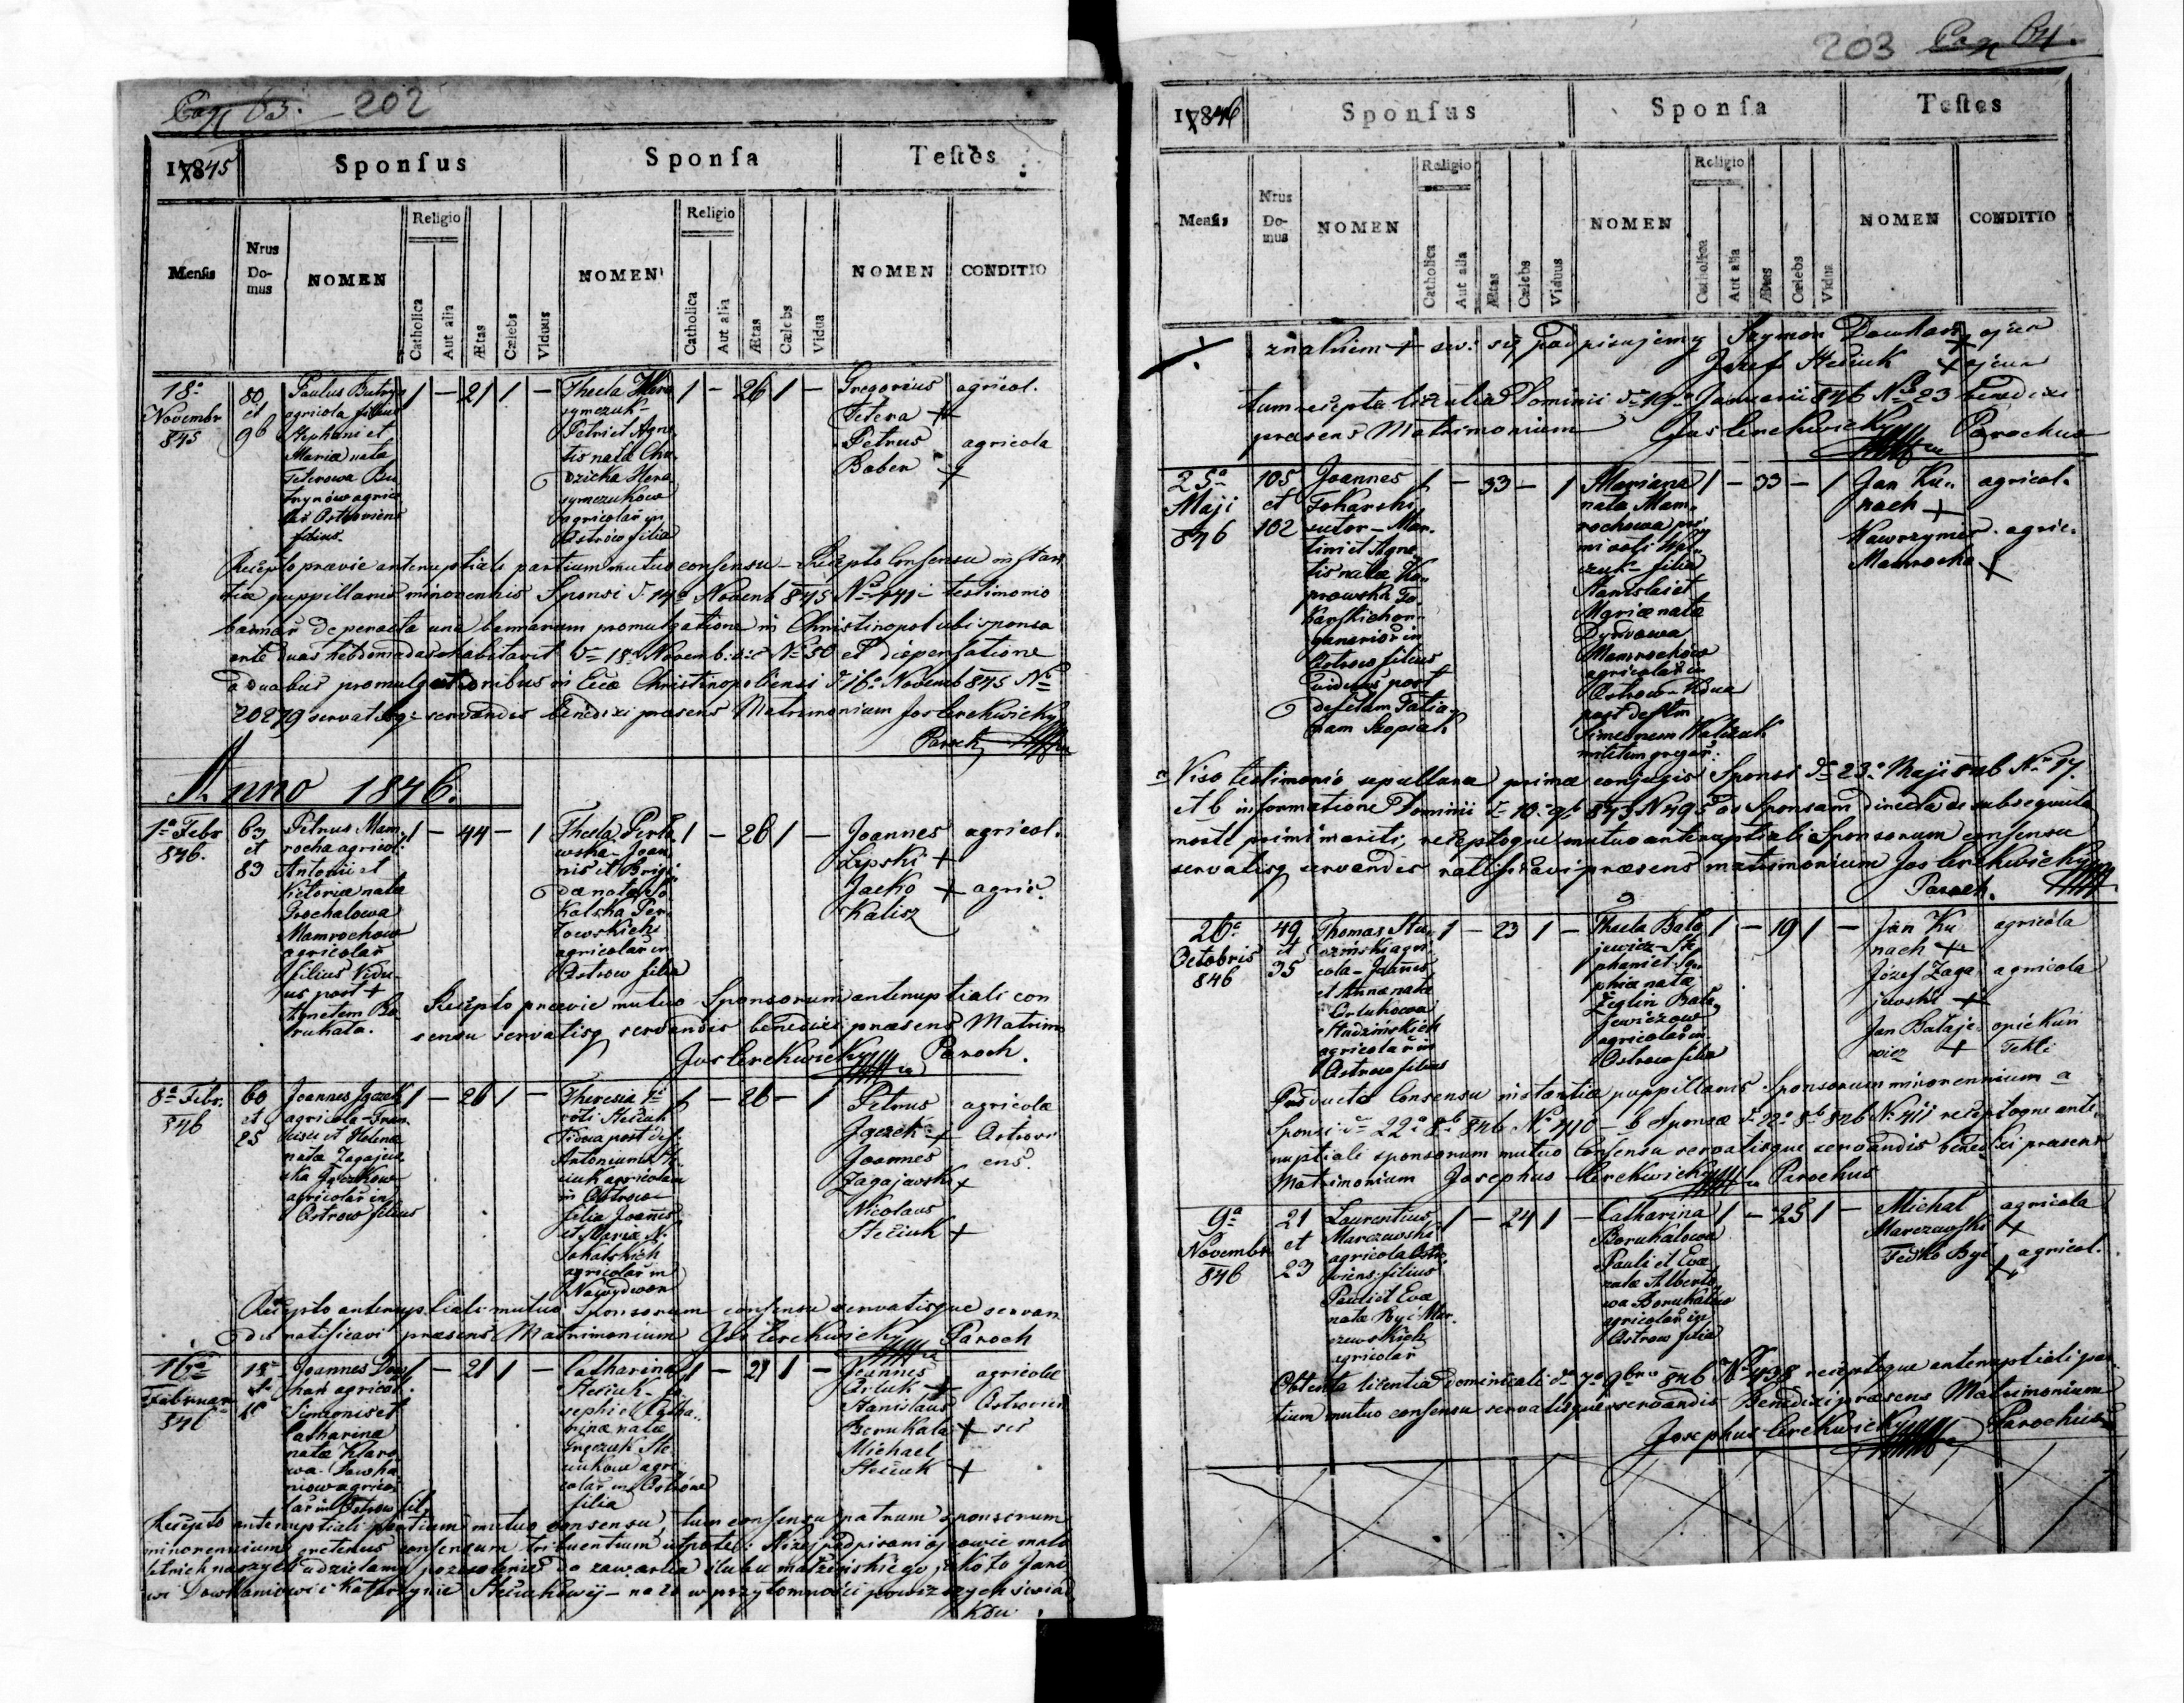 Pag 63. 202
17845 Sponſus Sponſa Teſtes
Menſis Nrus Domus NOMEN Religio Catholica Aut alia Ætas Cælebs Viduus NOMEN Religio Catholica Aut alia Ætas Cælebs Vidua NOMEN CONDITIO
18a
Novembr
845
80
et
96
Paulus Butryn
agricola filius
Stephani et
Mariæ nata
Teterowa Bu
trynów agrico
lar Ostroviens
filius.
1 – 21 1 –
Thecla Hera
symczuk
Petri et Agne
tis nata Cho
dzicka Hera
symczukow
agricolar in
Ostrów filia
1 – 26 1 –
Gregorius agricol.
Tetera +
Petrus agricola
Baben +
Recepto prævie antenuptiali partium mutuo consensu – Recepto Consensu instan
tiæ puppillaris minorennis Sponsi d. 14a Novemb 845 No 441 – testimonio
de peracta una bannorum promulgatione in Christinopol ubi sponsa
ante duas hebdomadas habitavit 18. Novemb: No 50 et dispensatione
a duabus promulgationibus in Christinopoliensi d 16a Novemb 845 No
20279 servatisq: servandis benedixi præsens Matrimonium Jos Cerekwicky
Paroch
Anno 1846.
1a Febr
846.
63
et
83
Petrus Mam
rocha agricol:
Antonii et
Victoriæ nata
Grochalowa
Mamrochow
agricolar
filius Vidu
us post +
Agnetem Bo
rukala.
1 – 44 – 1
Thecla Perko
wska – Joan
nis et Brigi
dæ nata So
kalska Per
kowskich
agricolar in
Ostrow filia
1 – 26 1 –
Joannes agricol.
Lipski +
Jacko + agric.
Kalisz
Recepto prævie mutuo Sponsorum antenuptiali con
sensu servatisq servandis benedixi præsens Matrim
Jos Cerekwicky Paroch.
8a Febr.
846
60
et
25
Joannes Jączek
agricola – Fran
cisci et Helenæ
nata Zagajew
ska Jączkow
agricolar in
Ostrow filius
1 – 26 1 –
Theresia 1o
voti Steciuk
Vidua post def.
Antonium St
ciuk agricolam
in Ostrow
filia Joannis
et Mariæ N.
Sokalskich
agricolar in
Nowydwor
1 – 26 – 1
Petrus agricolæ
Jączek + Ostrovi
Joannes ens.
Zagajewski +
Nicolaus
Steciuk +
Recepto antenuptiali mutuo Sponsorum consensu servatisque servan
dis ratificavi præsens Matrimonium Jos Cerekwicky Paroch
16a
Februar
846
Joannes Dow
han agricol.
Simeonis et
Catharinæ
nata Klaro
wa Dowha
niow agrico
lar in Ostrow fil.
1 – 21 1 –
Catharina
Steciuk – Jo
sephi et Catha
rinæ nata
Steciukow agri
colar in Ostrów
filia
1 – 21 1 –
Joannes agricolæ
Orluk + Ostrovien
Stanislaus ses
Borukala +
Michael
Steciuk +
Recepto antenuptiali partium mutuo consensu, tum consensu patrum sponsorum
minorennium consensum tribuentium utpote: Niżej podpisani ojcowie mało
letnich naszych udzielamy pozwolenie do zawarcia ślubu małżeńskiego, jako to Jano
wi Dowhaniowi i Katarzynie Steciukowij – na co w przytomności powższych świad
ków
203 Pag 64.
17846 Sponſus Sponſa Teſtes
Menſis Nrus Domus NOMEN Religio Catholica Aut alia Ætas Cælebs Viduus NOMEN Religio Catholica Aut alia Ætas Cælebs Vidua NOMEN CONDITIO
znakiem + sw: się podpisujemy Szymon Dowhan + ojciec
Józef Steciuk + ojciec
tum recepta licentia Dominii d 19a Januarii 846 No 23 benedixi
præsens Matrimonium Jos Cerekwicky Parochus
25a
Maji
846
105
et
102
Joannes
Tokarski
sutor – Mar
tini et Agne
tis nata Ko
prowska To
karskich or
ganarior in
Ostrow filius
viduus post
defctam Tatia
nam Szopiak
1 – 33 – 1
Mariana
nata Mam
rochowa pri
mi voti Wal
czuk – filia
Stanislai et
Mariæ nata
Dyrdowa
Mamrochow
agricolar in
Ostrow – Vidua
post defctm
Simeonem Walczuk
militem gregar.
1 – 33 – 1
Jan Ku agricol.
nach +
Wawrzyniec agric.
Mamrocha +
a Viso testimonio sepulturæ primæ conjugis Sponsi d 23a Maji 846 No 17.
et b informatione Dominii d 10a 9b 843 No 495 ad Sponsam directa de subsequuta
morte primi mariti, receptoque mutuo antenuptiali Sponsorum consensu
servatisq servandis ratificavi præsens matrimonium Jos Cerekwicky
Paroch.
26a
Octobris
846
49
et
35
Thomas Stu
dziński agri
cola – Joannis
et Annæ nata
Orlukowa
Studzińskich
agricolar in
Ostrow filius
1 – 23 1 –
Thecla Bała
jewicz – Ste
phani et So
phiæ nata
Żeglin Bała
jewiczow
agricolar in
Ostrow filia
1 – 19 1 –
Jan Ku agricola
nach +
Józef Zaga agricola
jewski +
Jan Bałaje opiekun
wicz + Tekli
Producto Consensu instantiæ puppillaris Sponsorum minorennium a
Sponsi d 22a 8b 846 No 410 – b Sponsæ d 22a 8b 846 No 411 receptoque ante
nuptiali sponsorum mutuo Consensu servatisque servandis benedixi præsens
Matrimonium Josephus Cerekwicky Parochus
9a
Novembr
846
21
et
23
Laurentius
Marczewski
agricola Ostro
viens. filius
Pauli et Evæ
nata Być Mar
czewskich
agricolar
1 – 24 1 –
Catharina
Borukalowa
Pauli et Evæ
nata Alberto
wa Borukałow
agricolar in
Ostrow filia
1 – 25 1 –
Michał agricola
Marczewski +
Fedko Być + agricol.
Obtenta licentia dominicali d 7a 9bris 846 No 438 receptoque antenuptiali par
tium mutuo consensu servatisque servandis Benedixi præsens Matrimonium
Josephus Cerekwicky Parochus